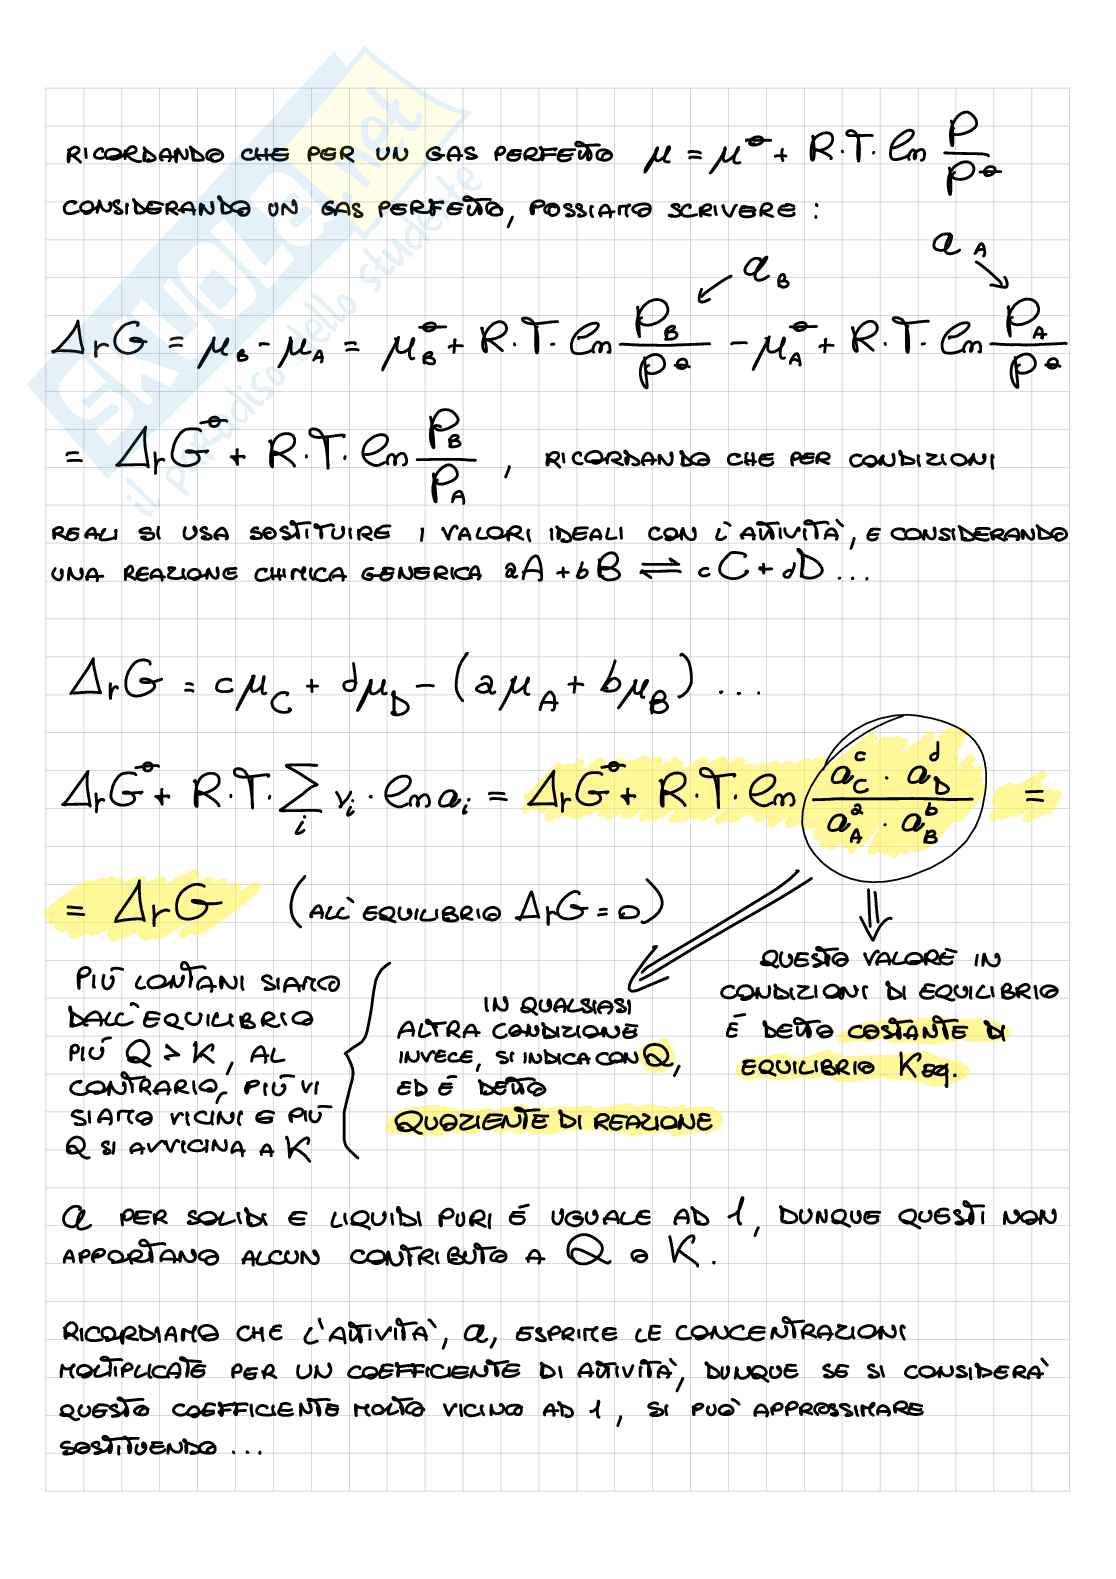 SKUOLA.net
il paradiso dello studente
RICORDANDO CHE PER UN GAS PERFETTO μ = μ^⦵ + R·T·ln P/P^⦵
CONSIDERANDO UN GAS PERFETTO, POSSIAMO SCRIVERE :
a_B a_A
Δ_rG = μ_B - μ_A = μ_B^⦵ + R·T·ln P_B/P^⦵ - μ_A^⦵ + R·T·ln P_A/P^⦵
= Δ_rG^⦵ + R·T·ln P_B/P_A , RICORDANDO CHE PER CONDIZIONI
REALI SI USA SOSTITUIRE I VALORI IDEALI CON L'ATTIVITÀ, E CONSIDERANDO
UNA REAZIONE CHIMICA GENERICA aA + bB ⇌ cC + dD ...
Δ_rG = cμ_C + dμ_D - (aμ_A + bμ_B) ...
Δ_rG^⦵ + R·T·∑_i ν_i · ln a_i = Δ_rG^⦵ + R·T·ln (a_C^c · a_D^d)/(a_A^a · a_B^b) =
= Δ_rG (ALL'EQUILIBRIO Δ_rG = 0)
PIÙ LONTANI SIAMO
DALL'EQUILIBRIO
PIÙ Q > K, AL
CONTRARIO, PIÙ VI
SIAMO VICINI E PIÙ
Q SI AVVICINA A K
IN QUALSIASI
ALTRA CONDIZIONE
INVECE, SI INDICA CON Q,
ED È DETTO
QUOZIENTE DI REAZIONE
QUESTO VALORE IN
CONDIZIONI DI EQUILIBRIO
È DETTO COSTANTE DI
EQUILIBRIO K EQ.
a PER SOLIDI E LIQUIDI PURI È UGUALE AD 1, DUNQUE QUESTI NON
APPORTANO ALCUN CONTRIBUTO A Q O K.
RICORDIAMO CHE L'ATTIVITÀ, a, ESPRIME LE CONCENTRAZIONI
MOLTIPLICATE PER UN COEFFICIENTE DI ATTIVITÀ, DUNQUE SE SI CONSIDERÀ
QUESTO COEFFICIENTE MOLTO VICINO AD 1, SI PUÒ APPROSSIMARE
SOSTITUENDO ...